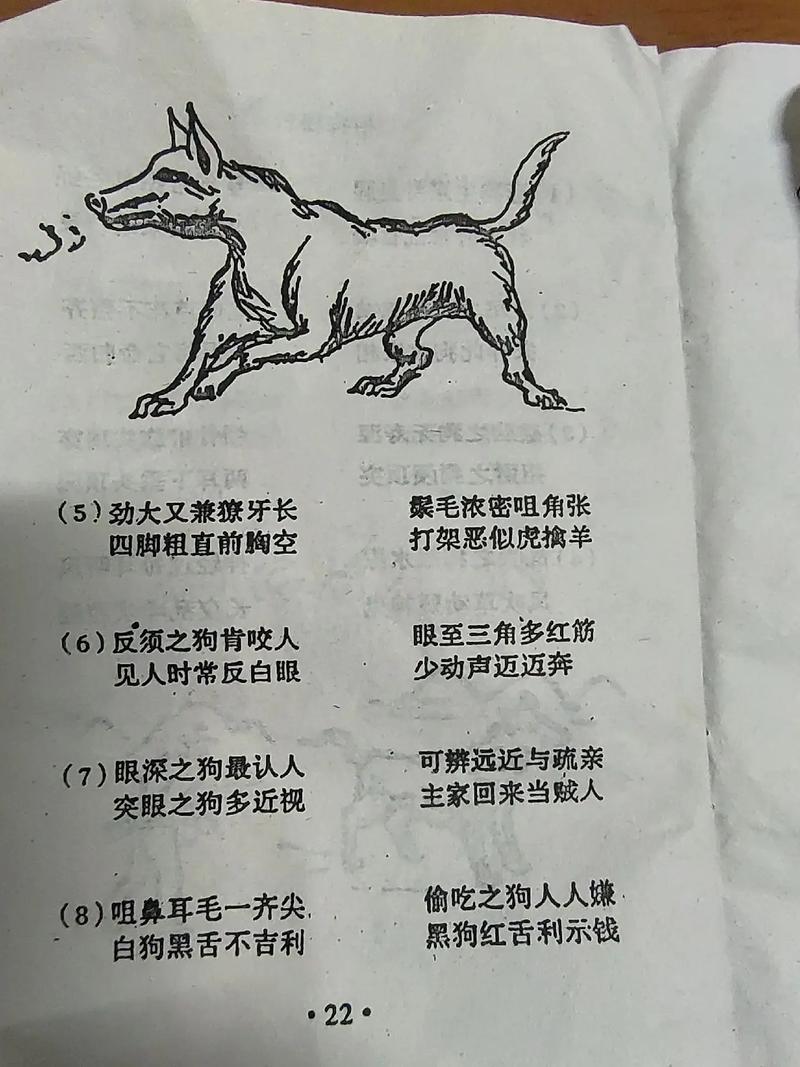 (5) 劲大又兼獠牙长 鬃毛浓密咀角张
四脚粗直前胸空 打架恶似虎擒羊
(6) 反须之狗肯咬人 眼至三角多红筋
见人时常反白眼 少动声迈迈奔
(7) 眼深之狗最认人 可辨远近与疏亲
突眼之狗多近视 主家回来当贼人
(8) 咀鼻耳毛一齐尖 偷吃之狗人人嫌
白狗黑舌不吉利 黑狗红舌利示钱
·22·